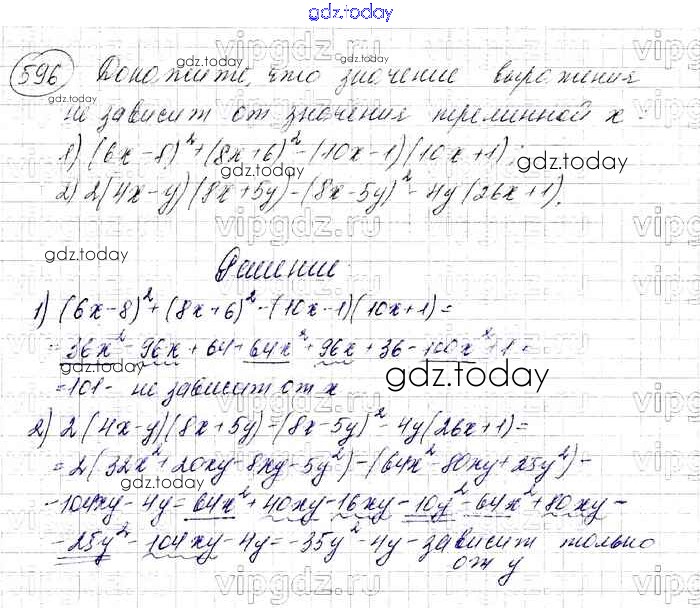 gdz.today
596 Докажите, что значение выражения
не зависит от значения переменной x.
1) (6x-8)²+(8x+6)²-(10x-1)(10x+1);
2) 2(4x-y)(8x+5y)-(8x-5y)²-4y(26x+1).
Решение
1) (6x-8)²+(8x+6)²-(10x-1)(10x+1)=
=36x²-96x+64+64x²+96x+36-100x²+1=
=101- не зависит от x
2) 2(4x-y)(8x+5y)-(8x-5y)²-4y(26x+1)=
=2(32x²+20xy-8xy-5y²)-(64x²-80xy+25y²)-
-104xy-4y=64x²+40xy-16xy-10y²-64x²+80xy-
-25y²-104xy-4y=-35y²-4y-зависит только
от y